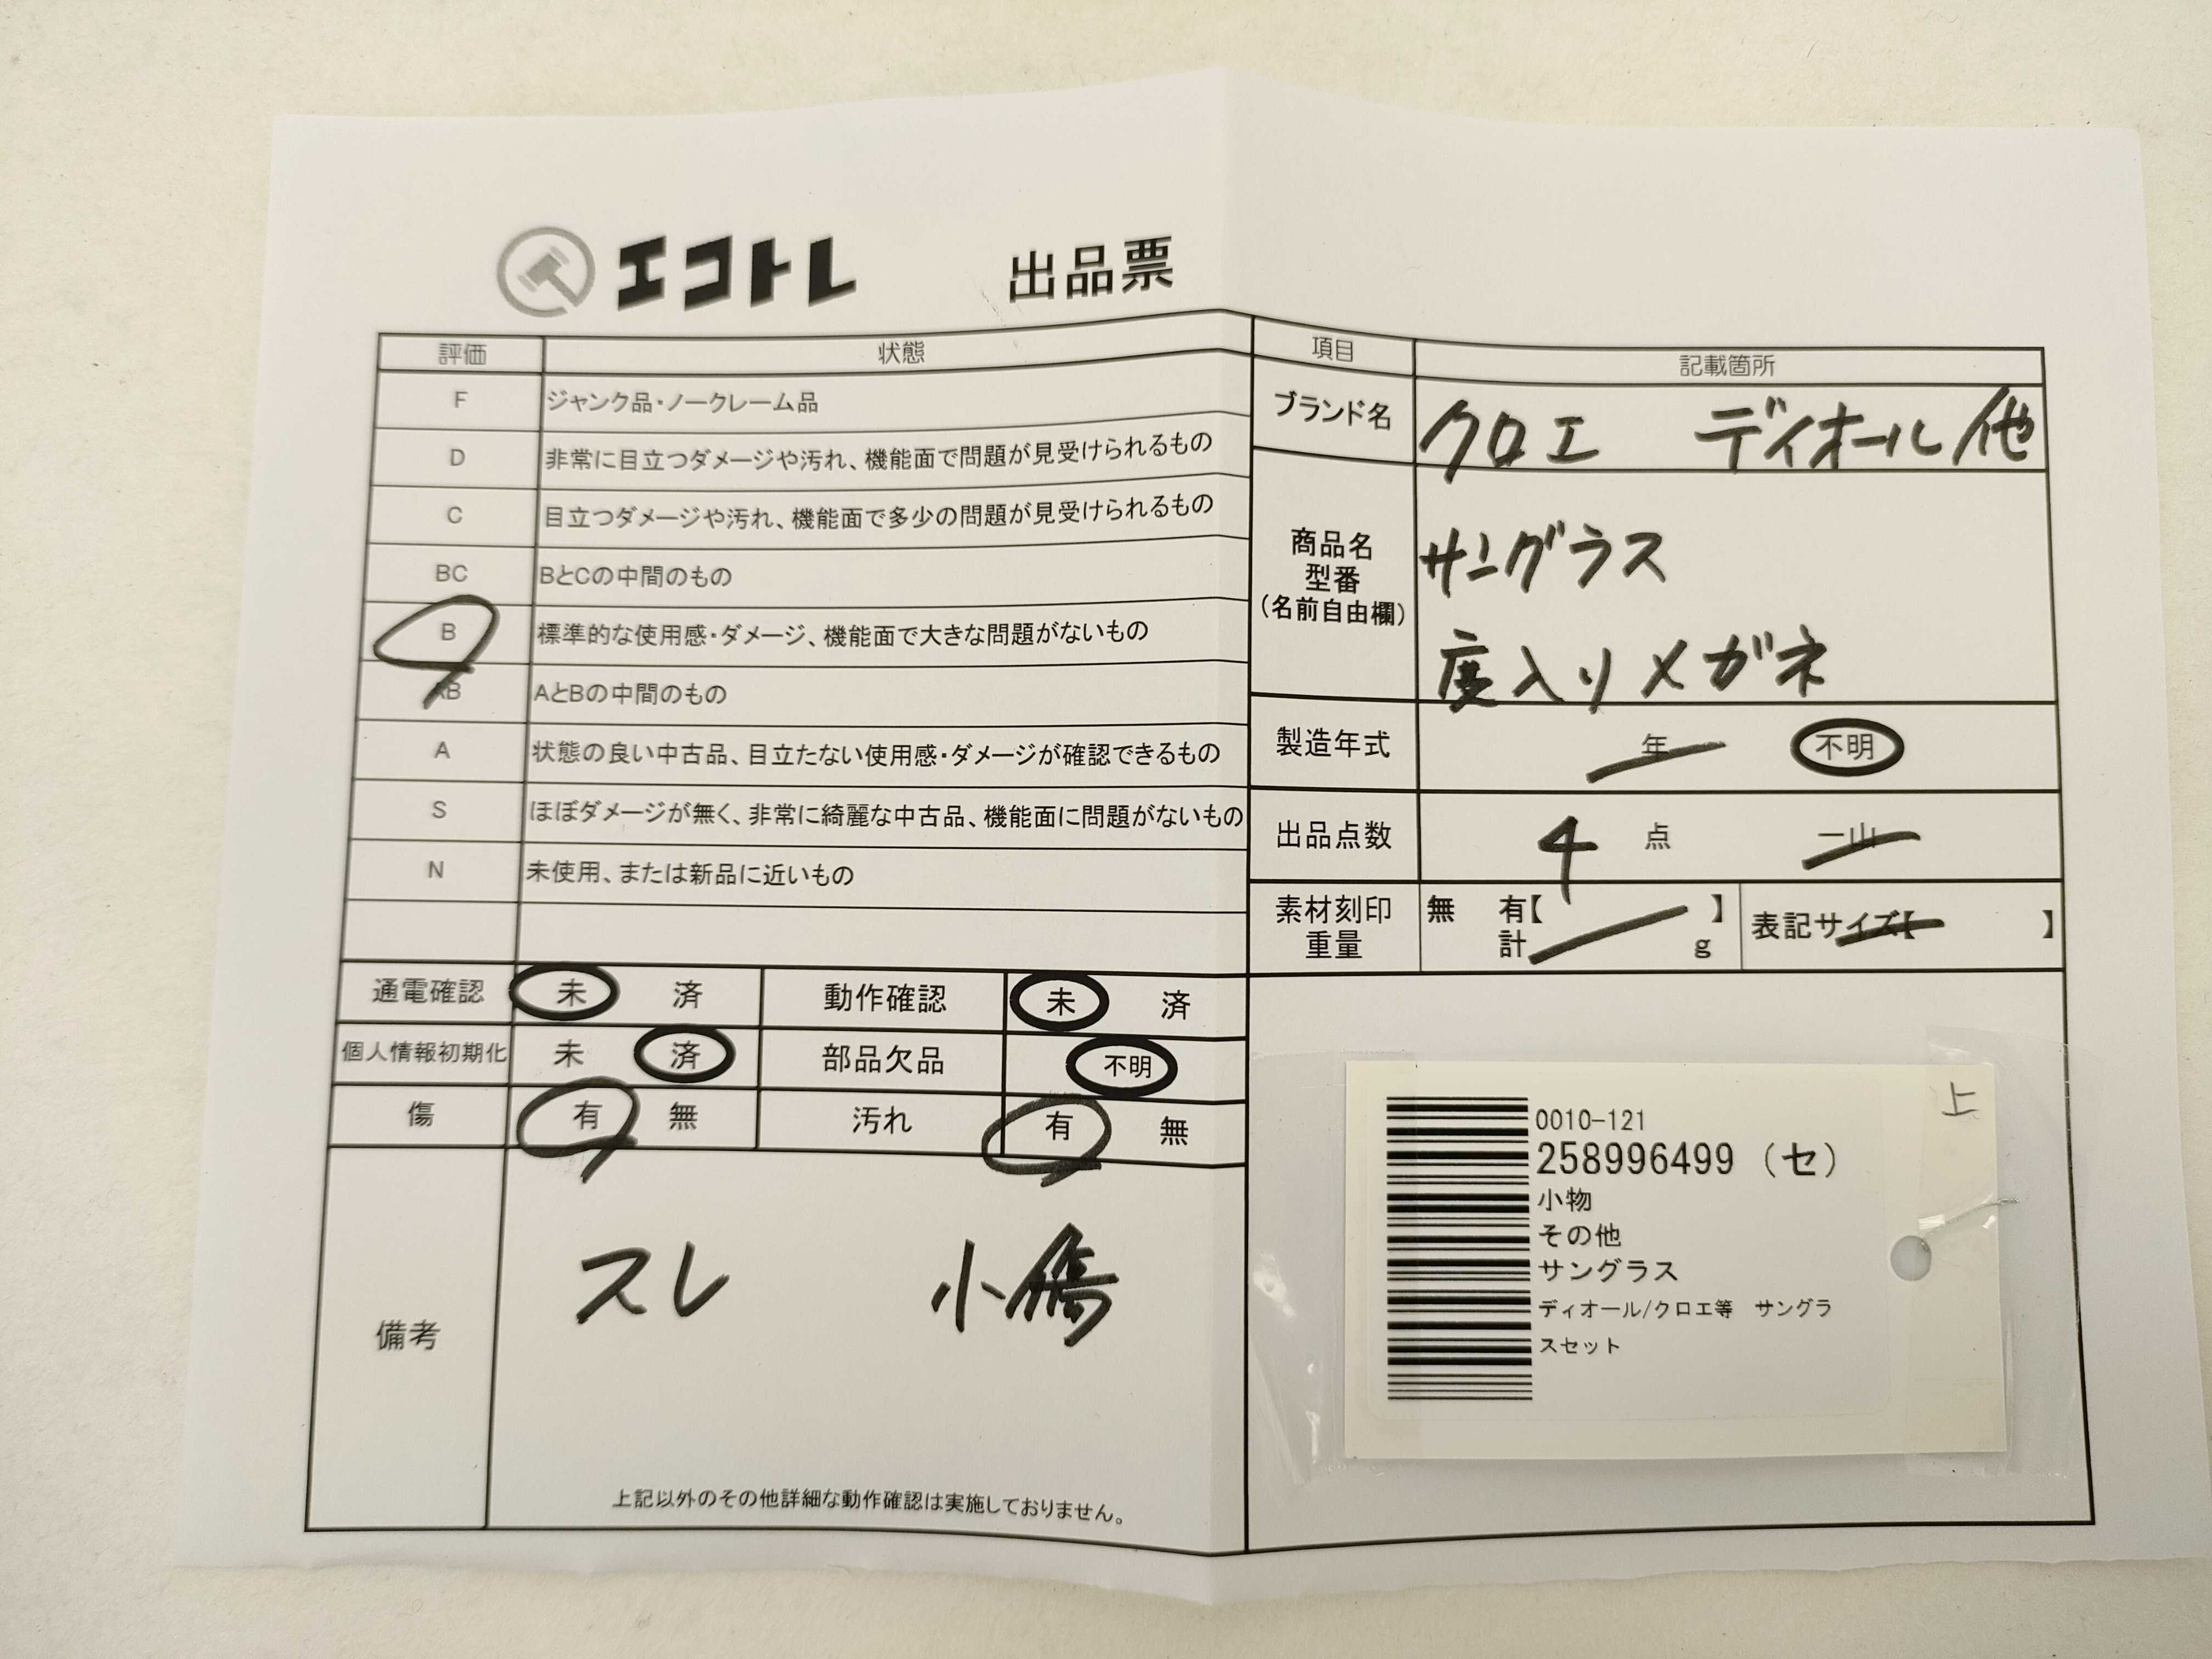 エコトレ 出品票
評価 状態
F ジャンク品・ノークレーム品
D 非常に目立つダメージや汚れ、機能面で問題が見受けられるもの
C 目立つダメージや汚れ、機能面で多少の問題が見受けられるもの
BC BとCの中間のもの
B 標準的な使用感・ダメージ、機能面で大きな問題がないもの
AB AとBの中間のもの
A 状態の良い中古品、目立たない使用感・ダメージが確認できるもの
S ほぼダメージが無く、非常に綺麗な中古品、機能面に問題がないもの
N 未使用、または新品に近いもの
通電確認 未 済 動作確認 未 済
個人情報初期化 未 済 部品欠品 不明
傷 有 無 汚れ 有 無
備考
スレ 小傷
上記以外のその他詳細な動作確認は実施しておりません。
項目 記載箇所
ブランド名 クロエ ディオール/他
商品名
型番
(名前自由欄)
サングラス
度入りメガネ
製造年式 年 不明
出品点数 4 点 一山
素材刻印 無 有【 】
重量 計 g
表記サイズ【 】
上
0010-121
258996499 (セ)
小物
その他
サングラス
ディオール/クロエ等 サングラ
スセット